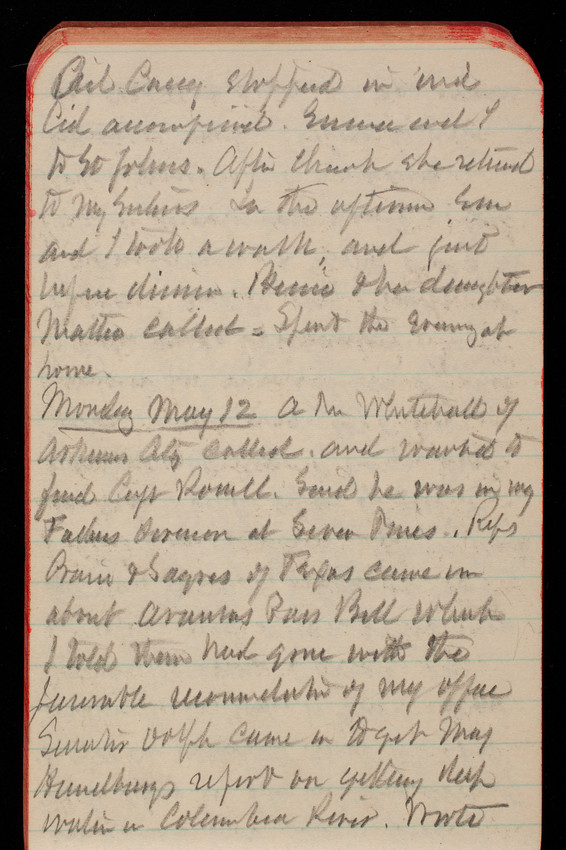 Phil Casey stopped in and
Cid accompanied. Emma and I
to St Johns. After church she returned
to My Entires In the afternoon Em
and I took a walk, and just
before dinner. & her daughter
Mattie called = Spent the Evening at
home.
Monday May 12 A Mr Whitehall of
Arkansas City called. and wanted to
find Capt Rowell. Said he was in my
Fathers Division at Seven Pines. Reps
Crain & Sayres of Texas came in
about Aransas Pass Bill which
I told them had gone with the
favorable recommendation of my office
Senator Dolph came in to get Maj
Handburys report on getting deep
water in Columbia River. Wrote